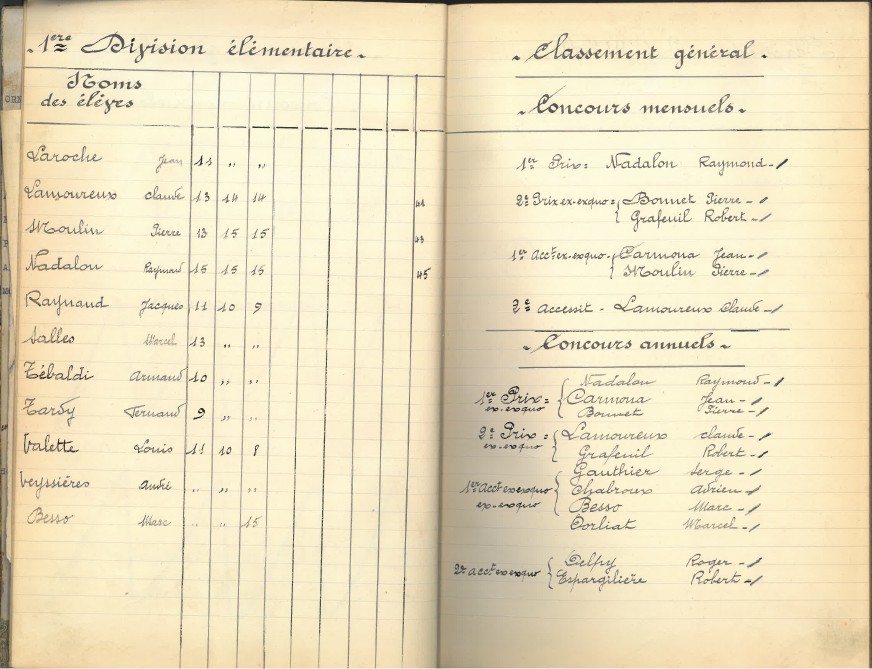 1ère Division élémentaire
Noms
des élèves
Laroche Jean 11 " "
Lamoureux Claude 13 14 14 41
Moulin Pierre 13 15 15 43
Nadalon Raymond 15 15 15 45
Raynaud Jacques 11 10 9
Salles Marcel 13 " "
Tébaldi Armand 10 " "
Tardy Fernand 9 " "
Valette Louis 11 10 8
Veyssières André " " "
Besso Marc " " 15
- Classement général -
- Concours mensuels -
1er Prix = Nadalon Raymond -/
2e Prix ex-exquo = { Bonnet Pierre -/
Grafeuil Robert -/
1er Acct ex-exquo - { Carmona Jean -/
Moulin Pierre -/
2e Accessit - Lamoureux Claude -/
- Concours annuels -
Nadalon Raymond -/
1er Prix = { Carmona Jean -/
ex-exquo Bonnet Pierre -/
2e Prix = { Lamoureux Claude -/
ex-exquo Grafeuil Robert -/
Gauthier Serge -/
1er Acct ex exquo { Chabroux Adrien -/
ex-exquo Besso Marc -/
Corliat Marcel -/
2e acct ex exquo { Delpy Roger -/
Espargilière Robert -/